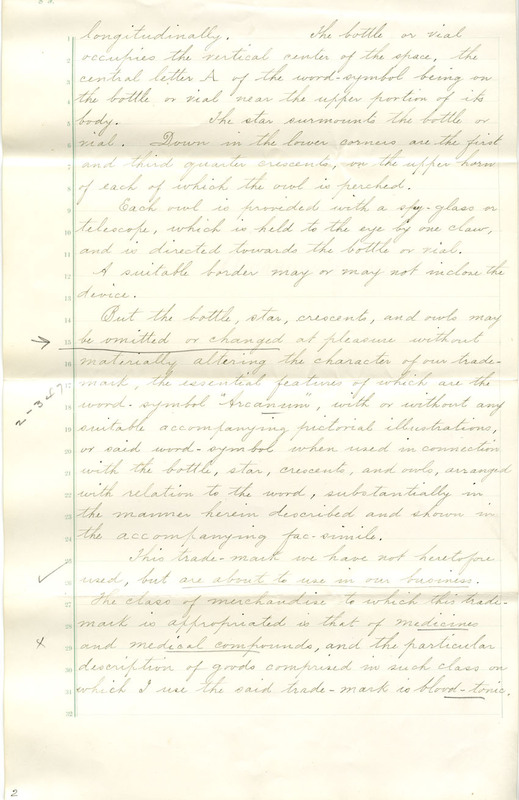 longitudinally. The bottle or vial
occupies the vertical center of the space, the
central letter A of the word-symbol being on
the bottle or vial near the upper portion of its
body. The star surmounts the bottle or
vial. Down in the lower corners are the first
and third quarter crescents, on the upper horn
of each of which the owl is perched.
Each owl is provided with a spy-glass or
telescope, which is held to the eye by one claw,
and is directed towards the bottle or vial.
A suitable border may or may not inclose the
device.
But the bottle, star, crescents, and owls may
be omitted or changed at pleasure without
materially altering the character of our trade-
mark, the essential features of which are the
word-symbol "Arcanum", with or without any
suitable accompanying pictorial illustrations,
or said word-symbol when used in connection
with the bottle, star, crescents, and owls, arranged
with relation to the word, substantially in
the manner herein described and shown in
the accompanying fac-simile.
This trade-mark we have not heretofore
used, but are about to use in our business.
The class of merchandise to which this trade-
mark is appropriated is that of medicines
and medical compounds, and the particular
description of goods comprised in such class on
which I use the said trade-mark is blood-tonic.
2-347
2